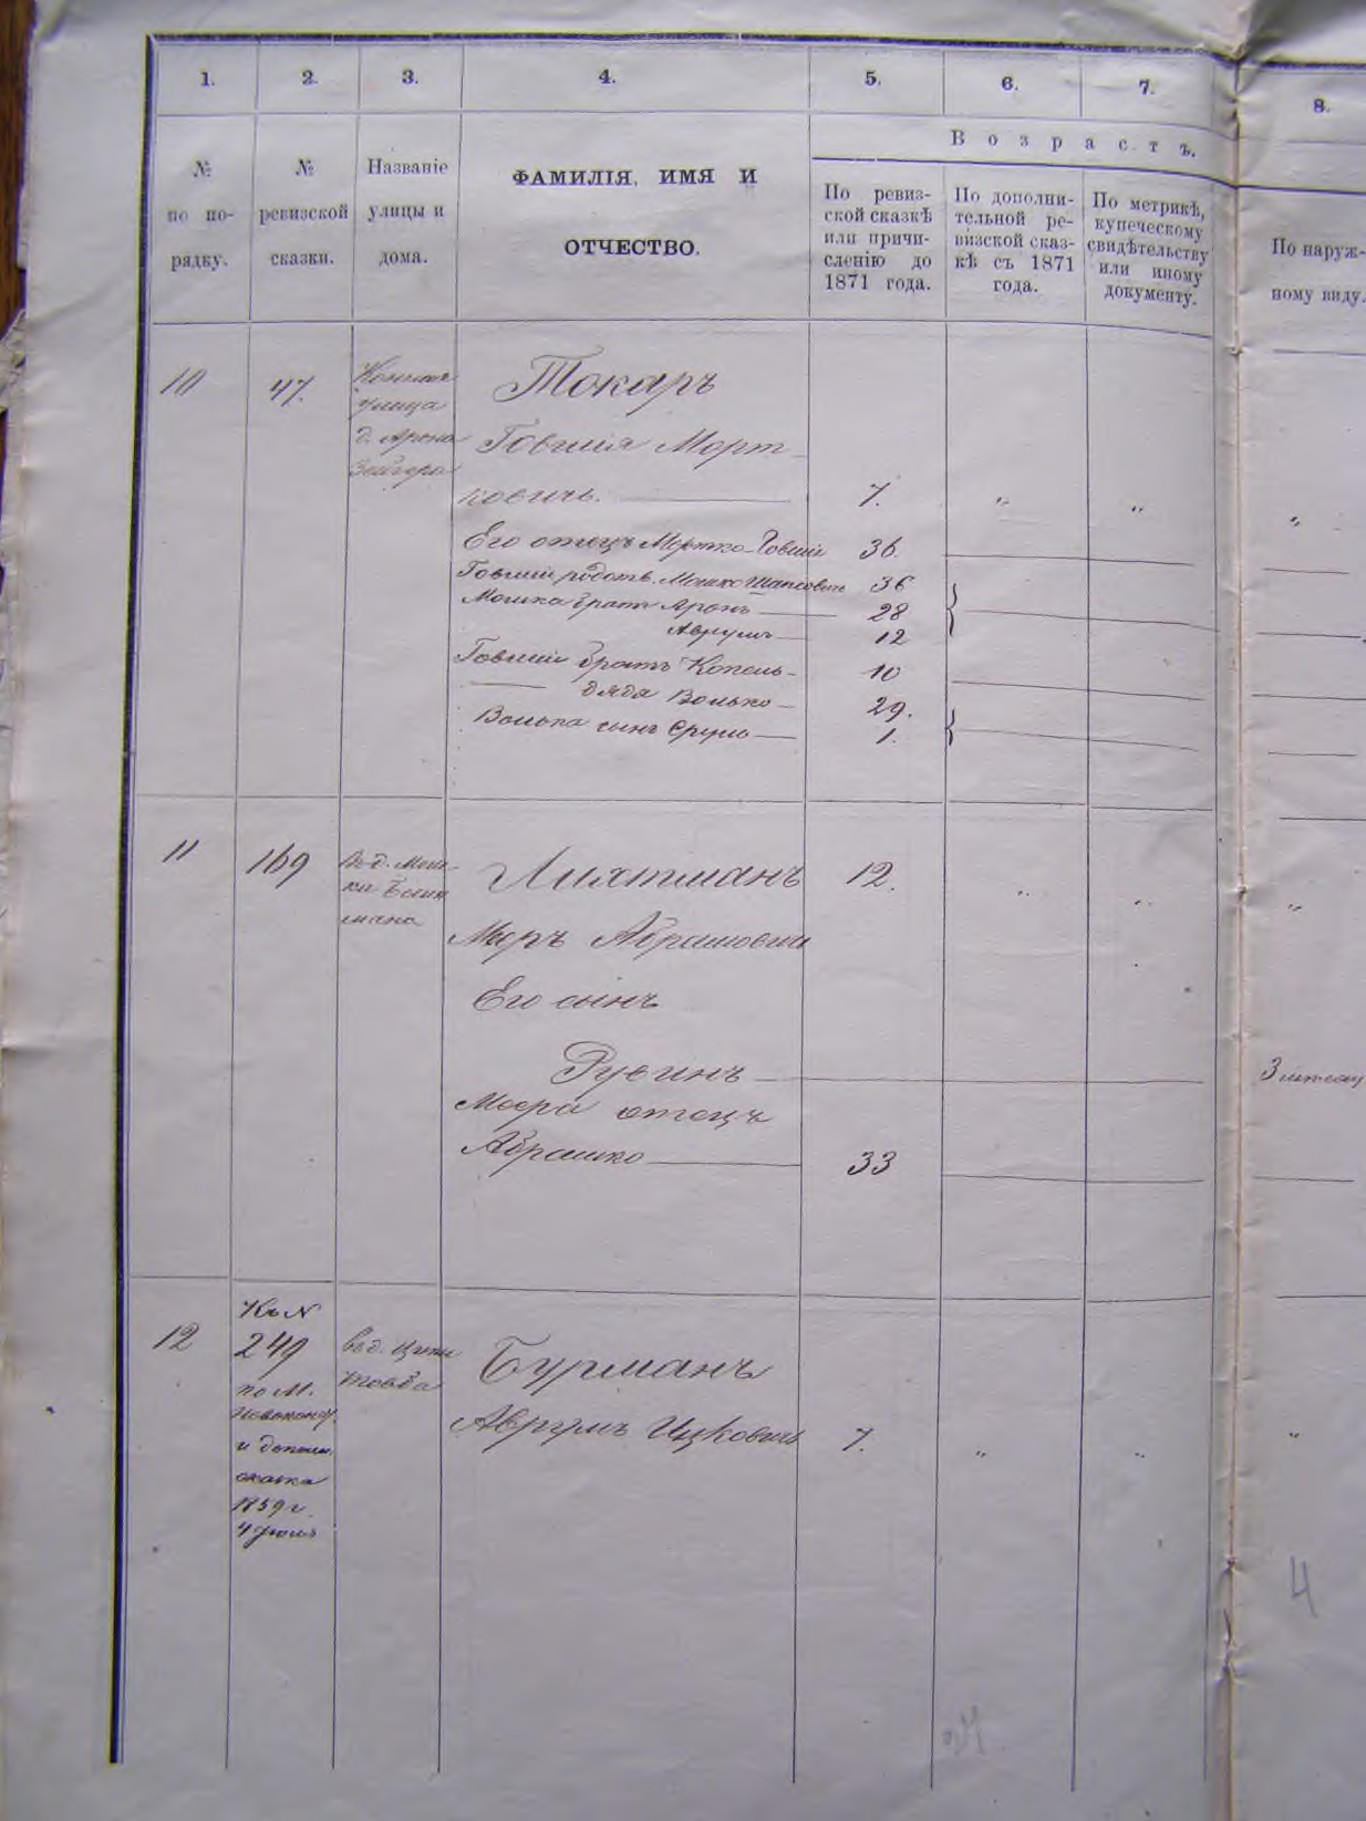 1. 2. 3. 4. 5. 6. 7. 8.
Возрастъ.
№ по по-рядку.
№ ревизской сказки.
Названіе улицы и дома.
ФАМИЛІЯ, ИМЯ И
ОТЧЕСТВО.
По ревиз-
ской сказкѣ
или причи-
сленію до
1871 года.
По дополни-
тельной ре-
визской сказ-
кѣ съ 1871
года.
По метрикѣ,
купеческому
свидѣтельству
или иному
документу.
По наруж-
ному виду.
10 47.
Конная
улица
д. Арона
Зейгера
Токаръ
Говшія Морт-
ковичъ. 7. " " "
Его отецъ Мортко-Говшія 36.
Говшіи родств. Мошко Шапсович 36
Мошка братъ Аронъ 28
Аврумъ 12
Говшіи братъ Копель 10
дядя Волько 29.
Волька сынъ Сруль 1.
11 169
въ д. Мош-
ки
мана
Лихтманъ 12. " " "
Меръ Абрамович
Его сынъ
Рувинъ 3
Меера отецъ
Абрашко 33
12
Къ №
249
по М.
и дополн.
сказка
1859 г.
4 Іюля
въ д.
Товба
Бурманъ
Аврумъ Ицкович 7. " " "
4